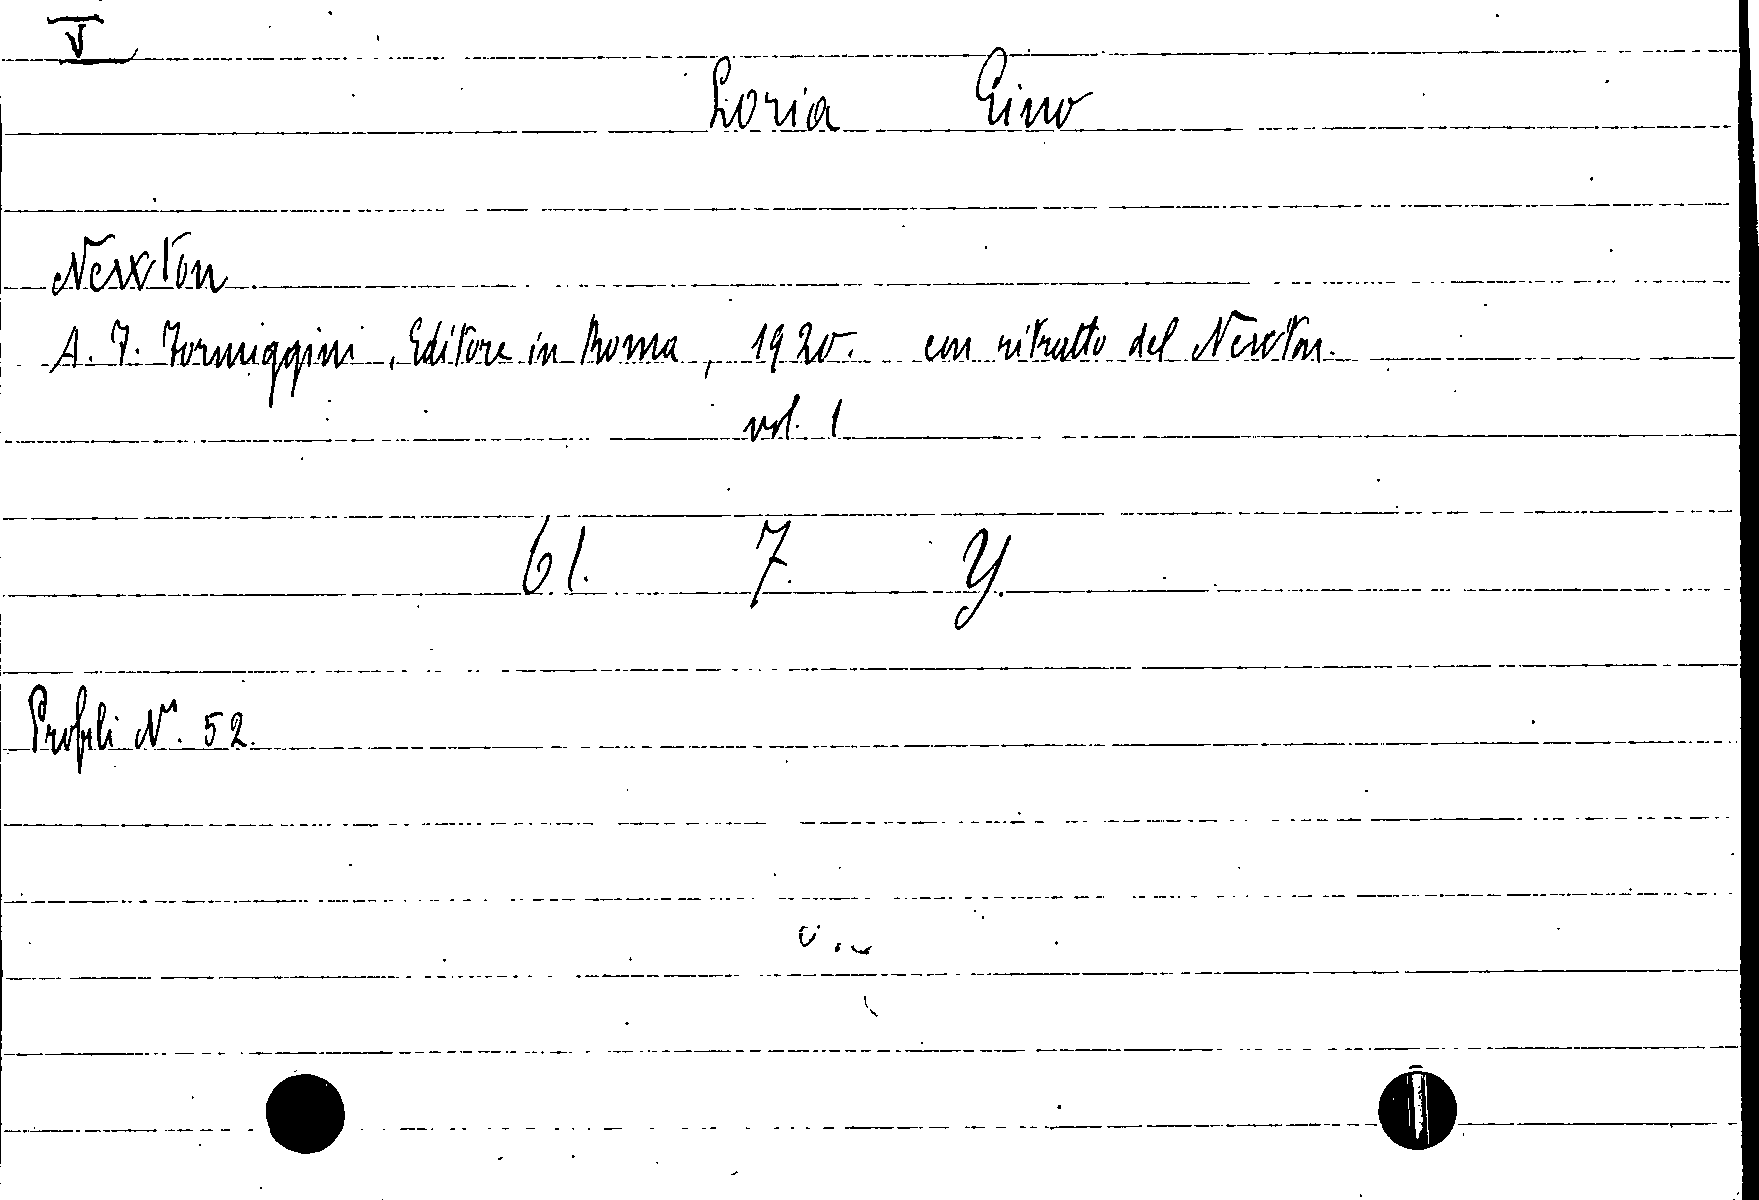 V
Loria Gino
Newton
A. F. Formiggini, Editore in Roma, 1920. con ritratto del Newton.
vol. 1
61. 7. Y.
Profili N°. 52.